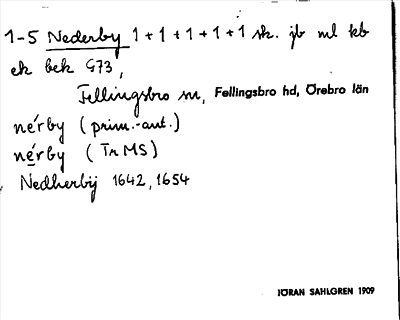 1-5 Nederby 1+1+1+1+1 sk. jb ml kb
ek bek G73,
Fellingsbro sn, Fellingsbro hd, Örebro län
nérby (prim.-ant.)
nérby (Tr MS)
Nedherbij 1642, 1654
JÖRAN SAHLGREN 1909